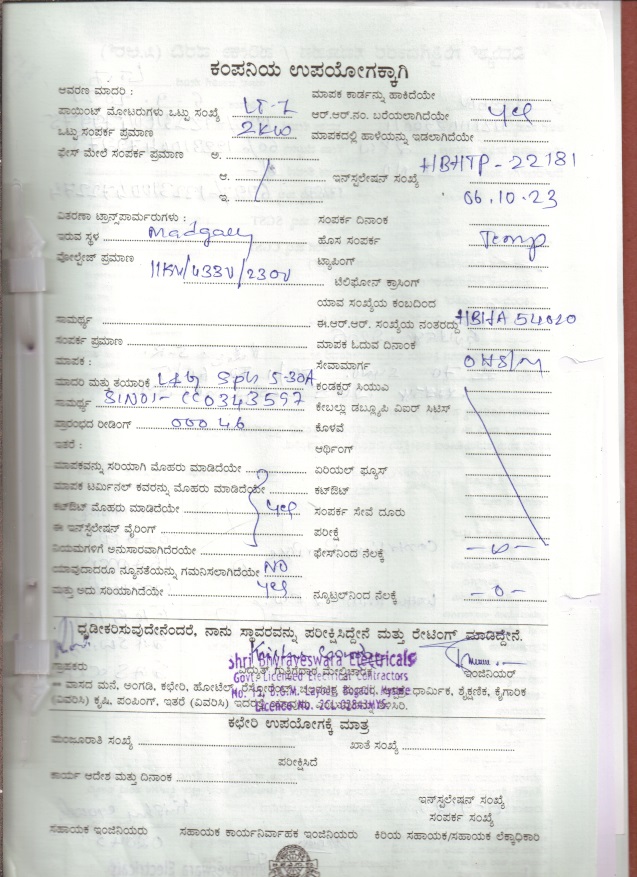 ಕಂಪನಿಯ ಉಪಯೋಗಕ್ಕಾಗಿ
ಆವರಣ ಮಾದರಿ :
ಮಾಪಕ ಕಾರ್ಡನ್ನು ಹಾಕಿದೆಯೇ
ಪಾಯಿಂಟ್ ಮೋಟರುಗಳು ಒಟ್ಟು ಸಂಖ್ಯೆ LT-7
ಆರ್.ಆರ್.ನಂ. ಬರೆಯಲಾಗಿದೆಯೇ Yes
ಒಟ್ಟು ಸಂಪರ್ಕ ಪ್ರಮಾಣ 2KW
ಮಾಪಕದಲ್ಲಿ ಹಾಳೆಯನ್ನು ಇಡಲಾಗಿದೆಯೇ
ಫೇಸ್ ಮೇಲೆ ಸಂಪರ್ಕ ಪ್ರಮಾಣ ಅ.
ಆ.
ಇನ್‌ಸ್ಟಲೇಷನ್ ಸಂಖ್ಯೆ HBHTP-22181
ಇ.
06.10.23
ವಿತರಣಾ ಟ್ರಾನ್ಸ್‌ಪಾರ್ಮರುಗಳು :
ಸಂಪರ್ಕ ದಿನಾಂಕ
ಇರುವ ಸ್ಥಳ Madgaly
ಹೊಸ ಸಂಪರ್ಕ Temp
ವೋಲ್ಟೇಜ್ ಪ್ರಮಾಣ 11KV/433V/230V
ಟ್ಯಾಪಿಂಗ್
ಟೆಲಿಫೋನ್ ಕ್ರಾಸಿಂಗ್
ಯಾವ ಸಂಖ್ಯೆಯ ಕಂಬದಿಂದ
ಸಾಮರ್ಥ್ಯ
ಈ.ಆರ್.ಆರ್. ಸಂಖ್ಯೆಯ ನಂತರದ್ದು HBHA 54020
ಸಂಪರ್ಕ ಪ್ರಮಾಣ
ಮಾಪಕ ಓದುವ ದಿನಾಂಕ
ಮಾಪಕ :
ಸೇವಾಮಾರ್ಗ OHS/M
ಮಾದರಿ ಮತ್ತು ತಯಾರಿಕೆ L&G Sph 5-30A
ಕಂಡಕ್ಟರ್ ಸಿಯುಎ
ಸಾಮರ್ಥ್ಯ SlNO:- CC0343597
ಕೇಬಲ್ಲು ಡಬ್ಲ್ಯೂಪಿ ವಿಐರ್ ಸಿಟಿಸ್
ಪ್ರಾರಂಭದ ರೀಡಿಂಗ್ 00046
ಕೊಳವೆ
ಇತರೆ :
ಆರ್ಥಿಂಗ್
ಮಾಪಕವನ್ನು ಸರಿಯಾಗಿ ಮೊಹರು ಮಾಡಿದೆಯೇ
ಏರಿಯಲ್ ಫ್ಯೂಸ್
ಮಾಪಕ ಟರ್ಮಿನಲ್ ಕವರನ್ನು ಮೊಹರು ಮಾಡಿದೆಯೇ
ಕಟ್‌ಔಟ್
ಕಟ್‌ಔಟ್ ಮೊಹರು ಮಾಡಿದೆಯೇ Yes
ಸಂಪರ್ಕ ಸೇವೆ ದೂರು
ಈ ಇನ್‌ಸ್ಟಲೇಷನ್ ವೈರಿಂಗ್
ಪರೀಕ್ಷೆ
ನಿಯಮಗಳಿಗೆ ಅನುಸಾರವಾಗಿದೆರಯೇ
ಫೇಸ್‌ನಿಂದ ನೆಲಕ್ಕೆ
ಯಾವುದಾದರೂ ನ್ಯೂನತೆಯನ್ನು ಗಮನಿಸಲಾಗಿದೆಯೇ NO
ಮತ್ತು ಅದು ಸರಿಯಾಗಿದೆಯೇ Yes
ನ್ಯೂಟ್ರಲ್‌ನಿಂದ ನೆಲಕ್ಕೆ -0-
ಧೃಡೀಕರಿಸುವುದೇನೆಂದರೆ, ನಾನು ಸ್ಥಾವರವನ್ನು ಪರೀಕ್ಷಿಸಿದ್ದೇನೆ ಮತ್ತು ರೇಟಿಂಗ್ ಮಾಡಿದ್ದೇನೆ.
Shri Bhyrayeswara Electricals
ಗ್ರಾಹಕರು
ವಿದ್ಯುತ್ ಗುತ್ತಿಗೆದಾರ
ಇಂಜಿನಿಯರ್
Govt Licenced Electrical Contractors
ವಾಸದ ಮನೆ, ಅಂಗಡಿ, ಕಛೇರಿ, ಹೋಟೆಲ್, ಧಾರ್ಮಿಕ, ಶೈಕ್ಷಣಿಕ, ಕೈಗಾರಿಕ
No. 19, D.G.M. Layout, Bogadi, Mysore
(ವಿವರಿಸಿ) ಕೃಷಿ, ಪಂಪಿಂಗ್, ಇತರೆ (ವಿವರಿಸಿ)
Licence No. 2CL02843MYS
ಕಛೇರಿ ಉಪಯೋಗಕ್ಕೆ ಮಾತ್ರ
ಮಂಜೂರಾತಿ ಸಂಖ್ಯೆ
ಖಾತೆ ಸಂಖ್ಯೆ
ಪರೀಕ್ಷಿಸಿದೆ
ಕಾರ್ಯ ಆದೇಶ ಮತ್ತು ದಿನಾಂಕ
ಇನ್‌ಸ್ಟಲೇಷನ್ ಸಂಖ್ಯೆ
ಸಂಪರ್ಕ ಸಂಖ್ಯೆ
ಸಹಾಯಕ ಇಂಜಿನಿಯರು ಸಹಾಯಕ ಕಾರ್ಯನಿರ್ವಾಹಕ ಇಂಜಿನಿಯರು ಕಿರಿಯ ಸಹಾಯಕ/ಸಹಾಯಕ ಲೆಕ್ಕಾಧಿಕಾರಿ